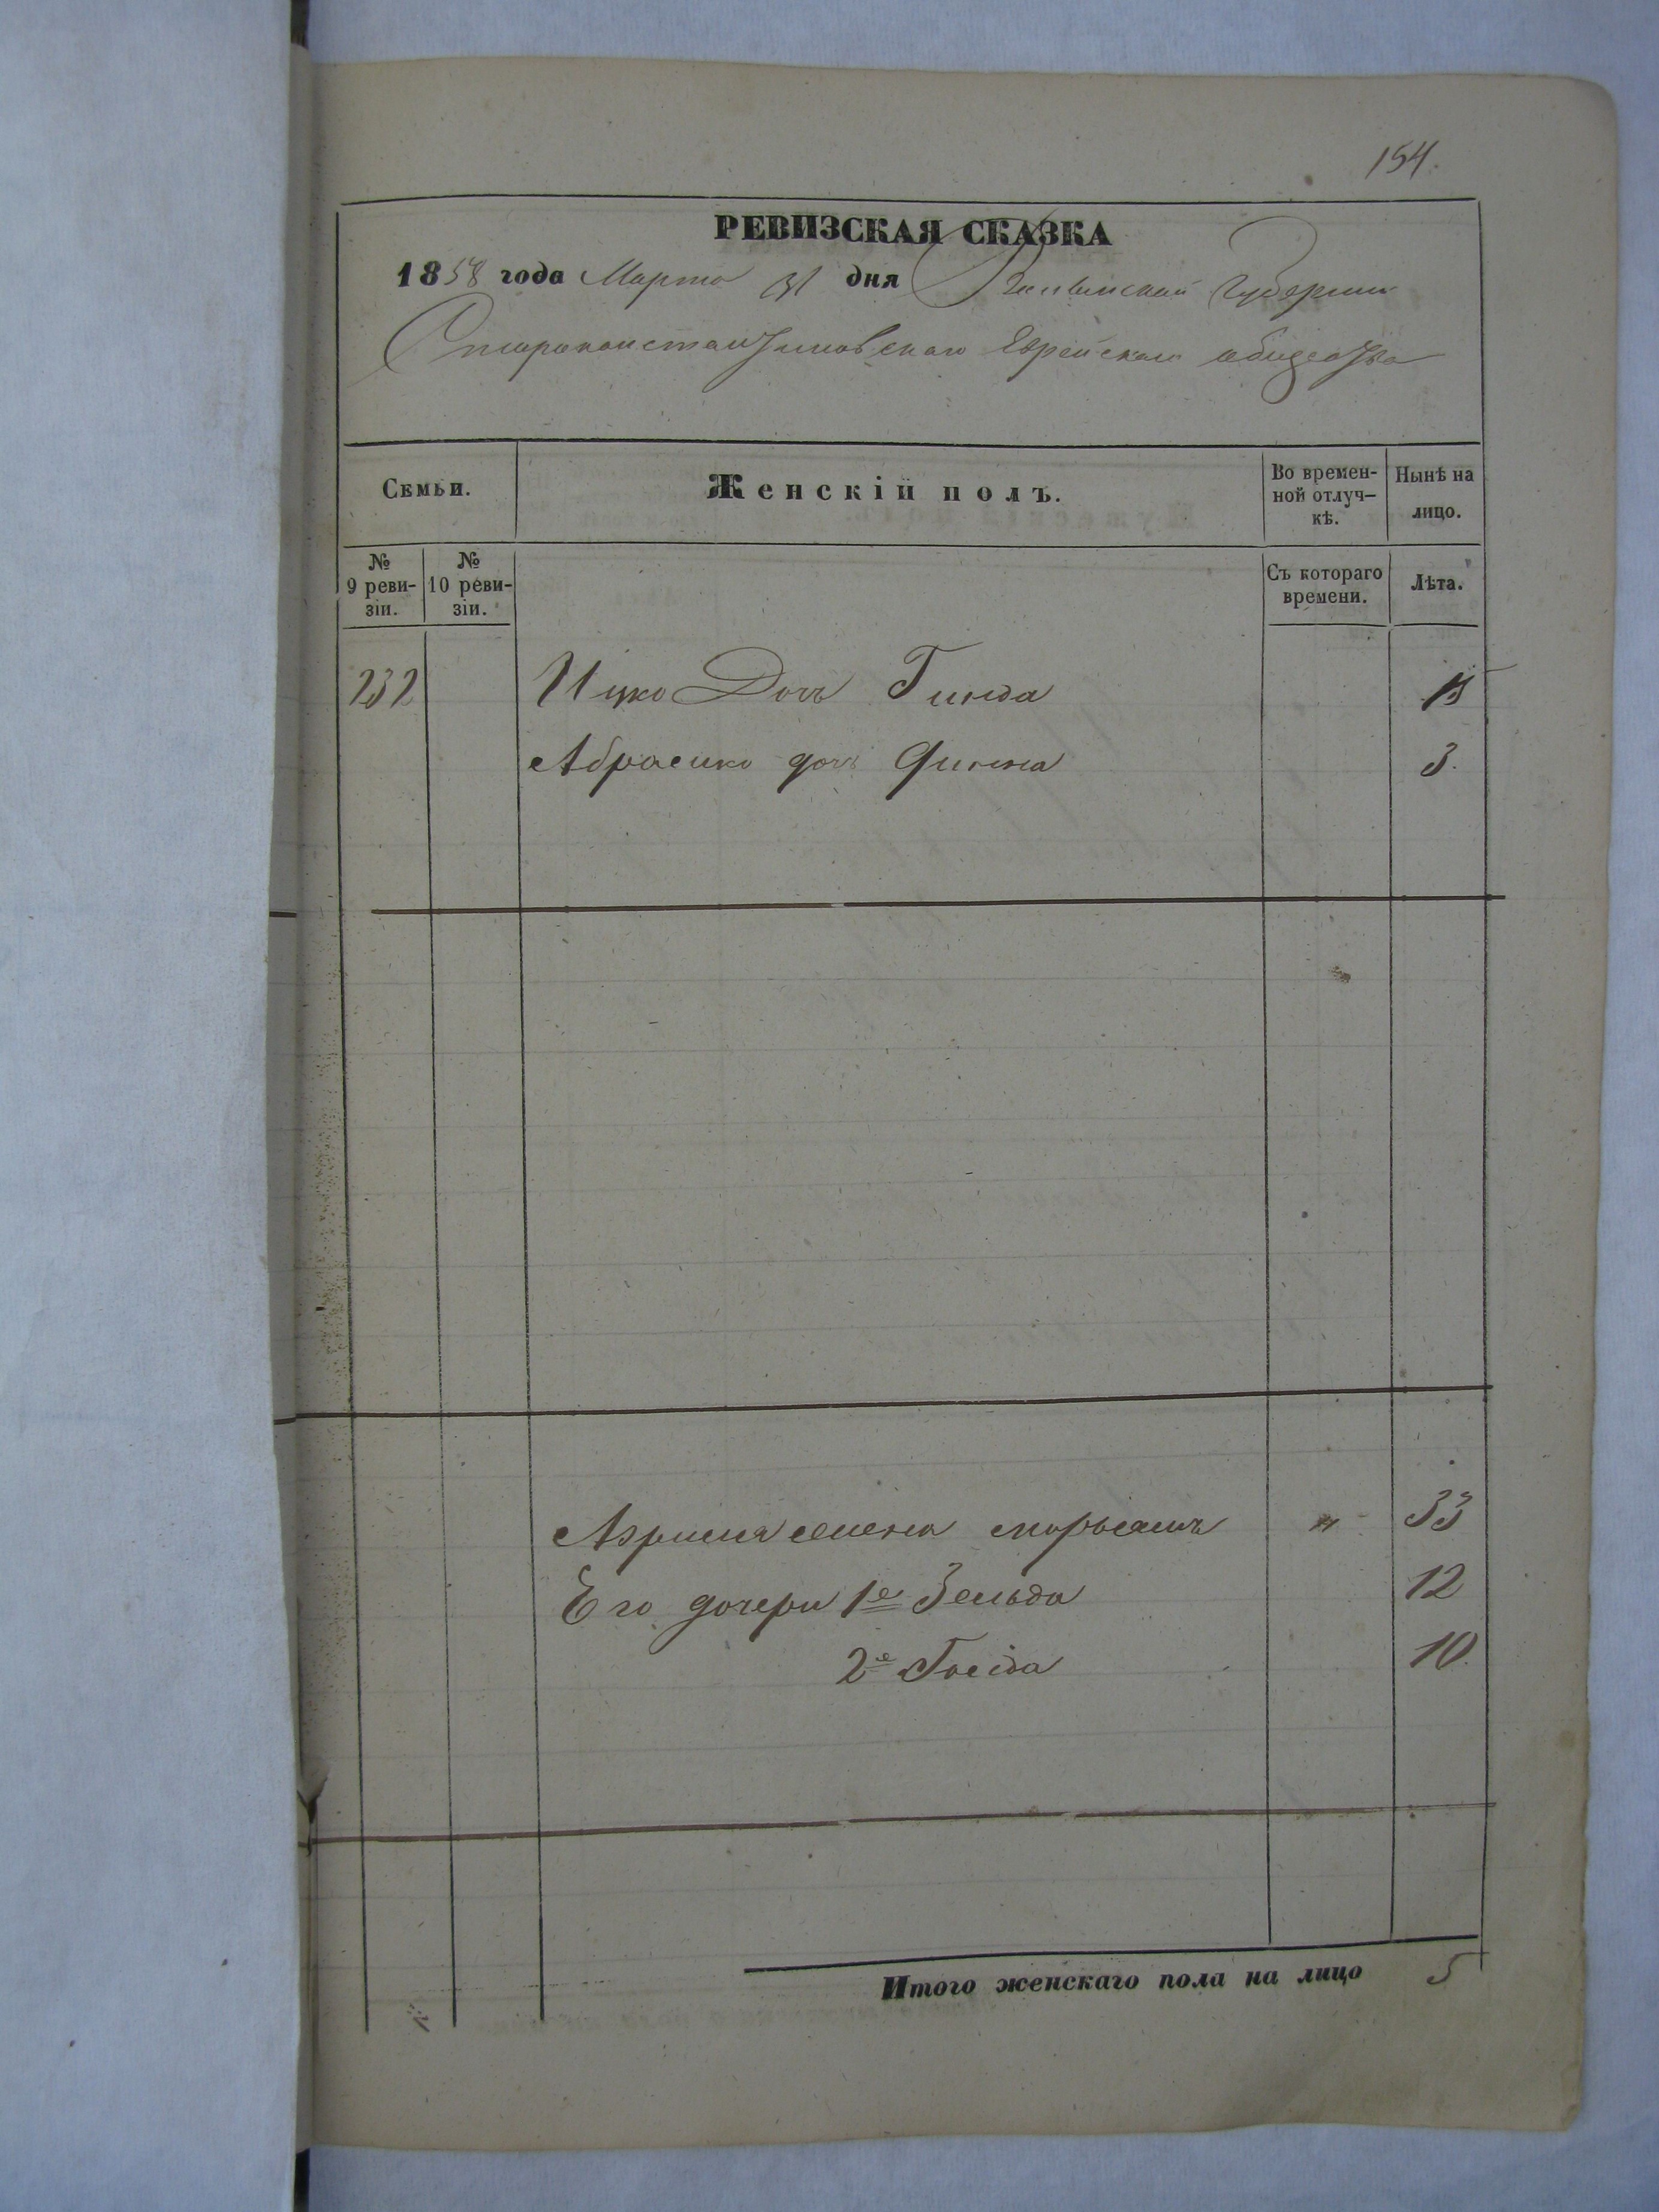 154.
РЕВИЗСКАЯ СКАЗКА
1858 года Марта 31 дня Волынской Губернии
Староконстантиновскаго Еврейскаго общества
Семьи.
Женскій полъ.
Во времен-
ной отлуч-
кѣ.
Нынѣ на
лицо.
№
9 реви-
зіи.
№
10 реви-
зіи.
Съ котораго
времени.
Лѣта.
232 Ицко Дочь Гинда
Абрамко дочь 3.
жена 〃 33
Его дочери 1е Зельда 12
2е 10.
Итого женскаго пола на лицо 5